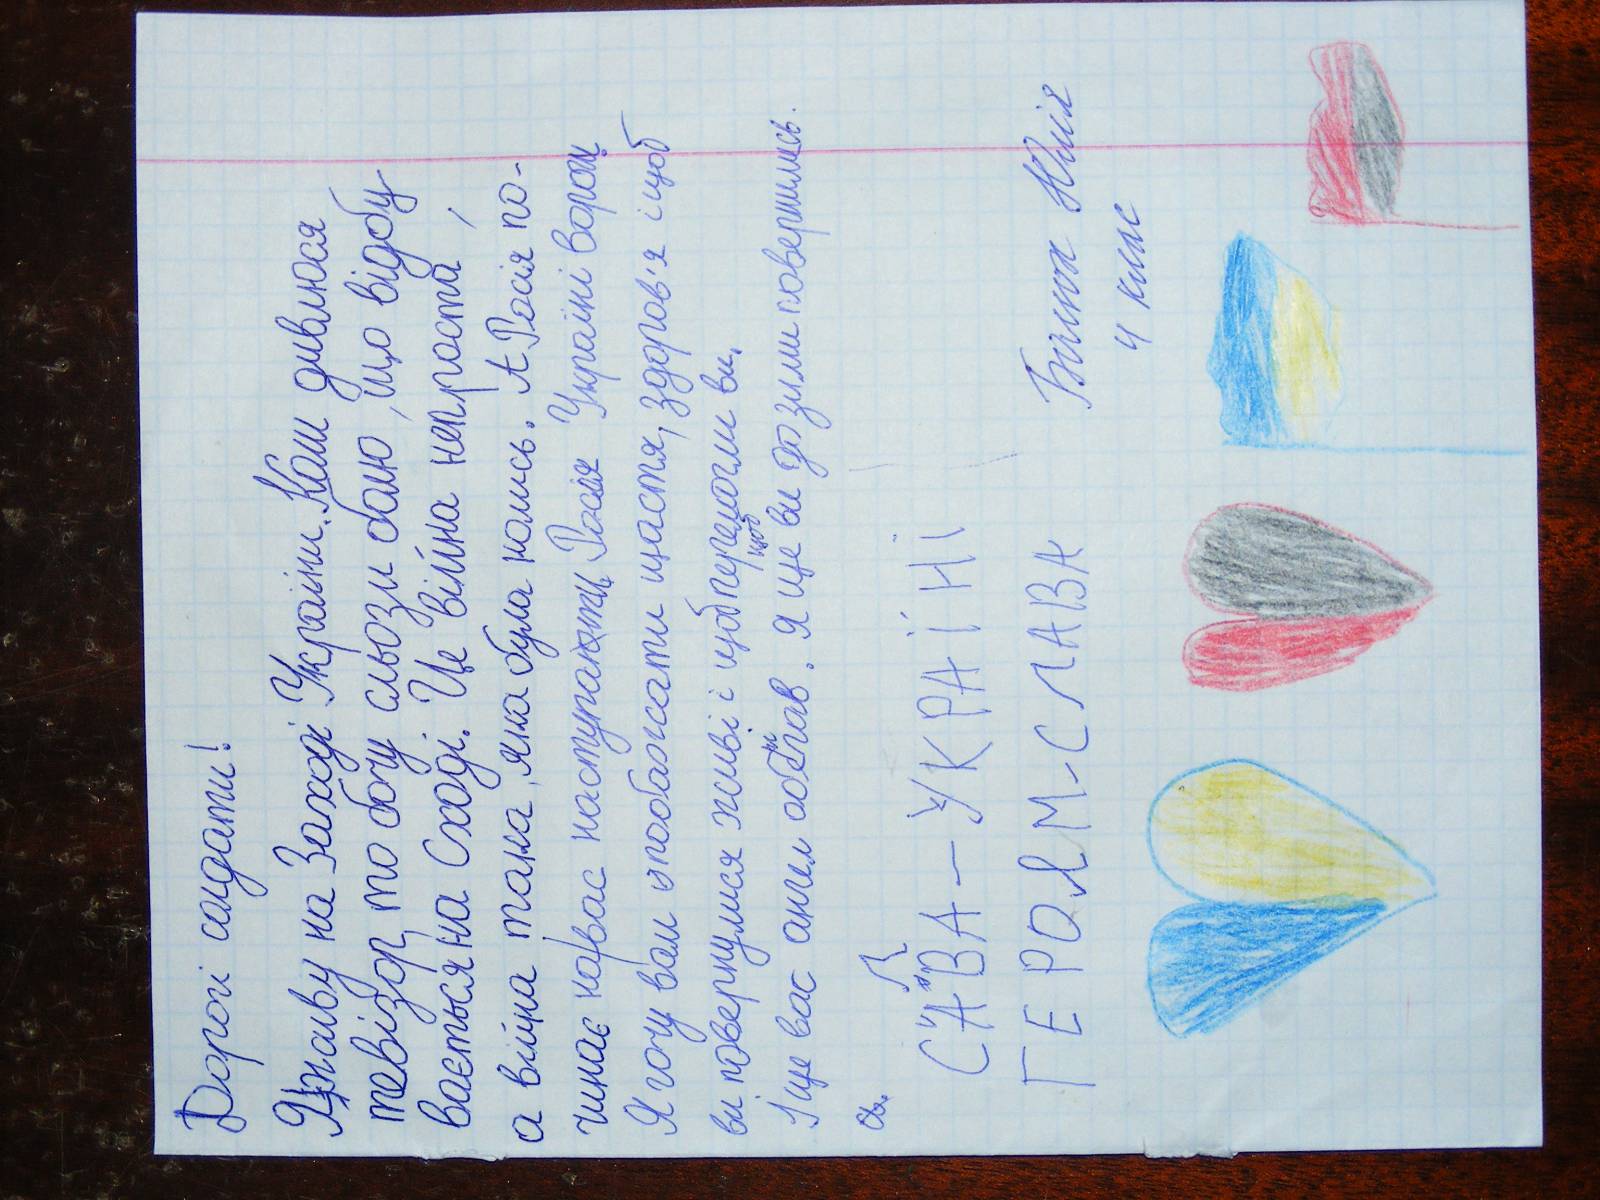 Дорогі салдати!
Я живу на Заході України. Коли дивлюся
тевізор, то бачу сльози болю, що відбу
вається на Сході. Це війна непроста,
а війна така, яка була колись. А Росія по-
чинає на вас наступати, Росія Україні ворог
Я хочу вам упобажати щастя, здоров'я і щоб
ви повернулися живі і щоб перемогли ви.
І ще вас ангел обегав. Я ще ви до зими повернились.
а.
СЛАВА – УКРАЇНІ
ГЕРОЯМ-СЛАВА
Юлія
4 клас